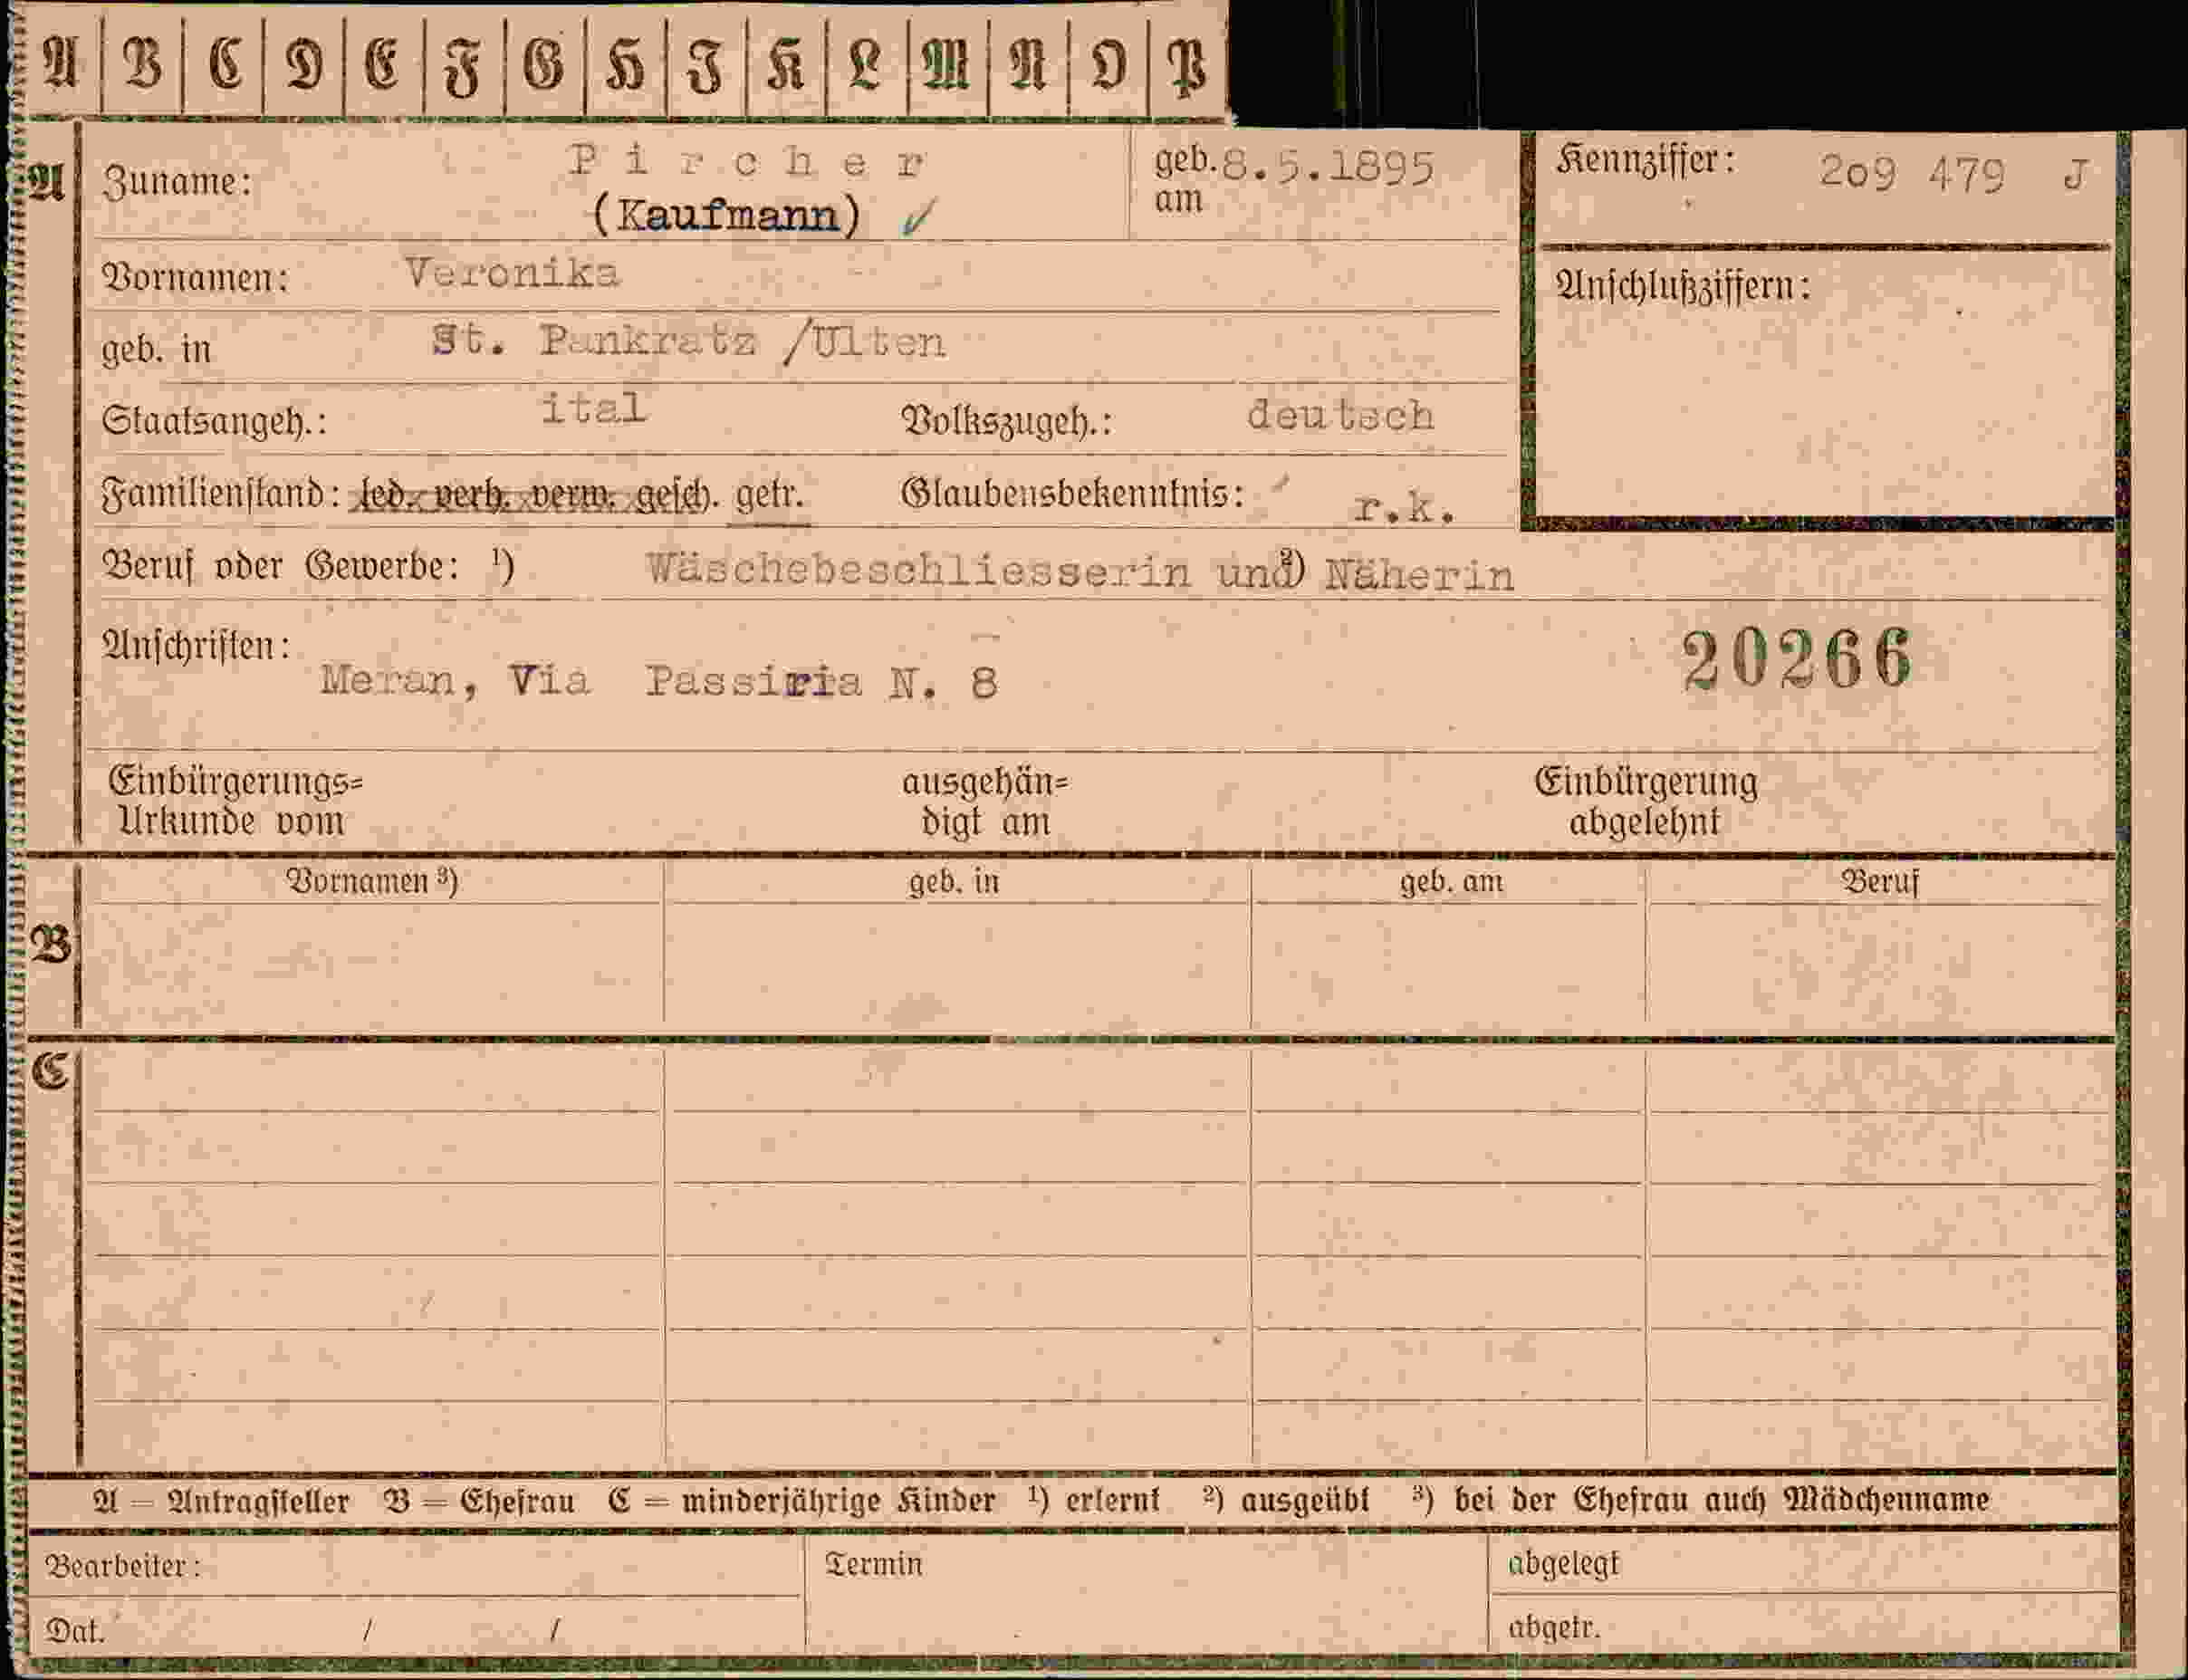 A B C D E F G H I K L M N O P
A Zuname: Pircher geb. am 8.5.1895 Kennziffer: 2o9 479 J
(Kaufmann) ✓
Vornamen: Veronika Anschlußziffern:
geb. in St. Pankratz /Ulten
Staatsangeh.: ital Volkszugeh.: deutsch
Familienstand: led. verh. verw. gesch. getr. Glaubensbekenntnis: r.k.
Beruf oder Gewerbe: ¹) Wäschebeschliesserin und ²) Näherin
Anschriften: 20266
Meran, Via Passiria N. 8
Einbürgerungs= ausgehän= Einbürgerung
Urkunde vom digt am abgelehnt
Vornamen ³) geb. in geb. am Beruf
B
C
A = Antragsteller B = Ehefrau C = minderjährige Kinder ¹) erlernt ²) ausgeübt ³) bei der Ehefrau auch Mädchenname
Bearbeiter: Termin abgelegt
Dat. / / abgetr.